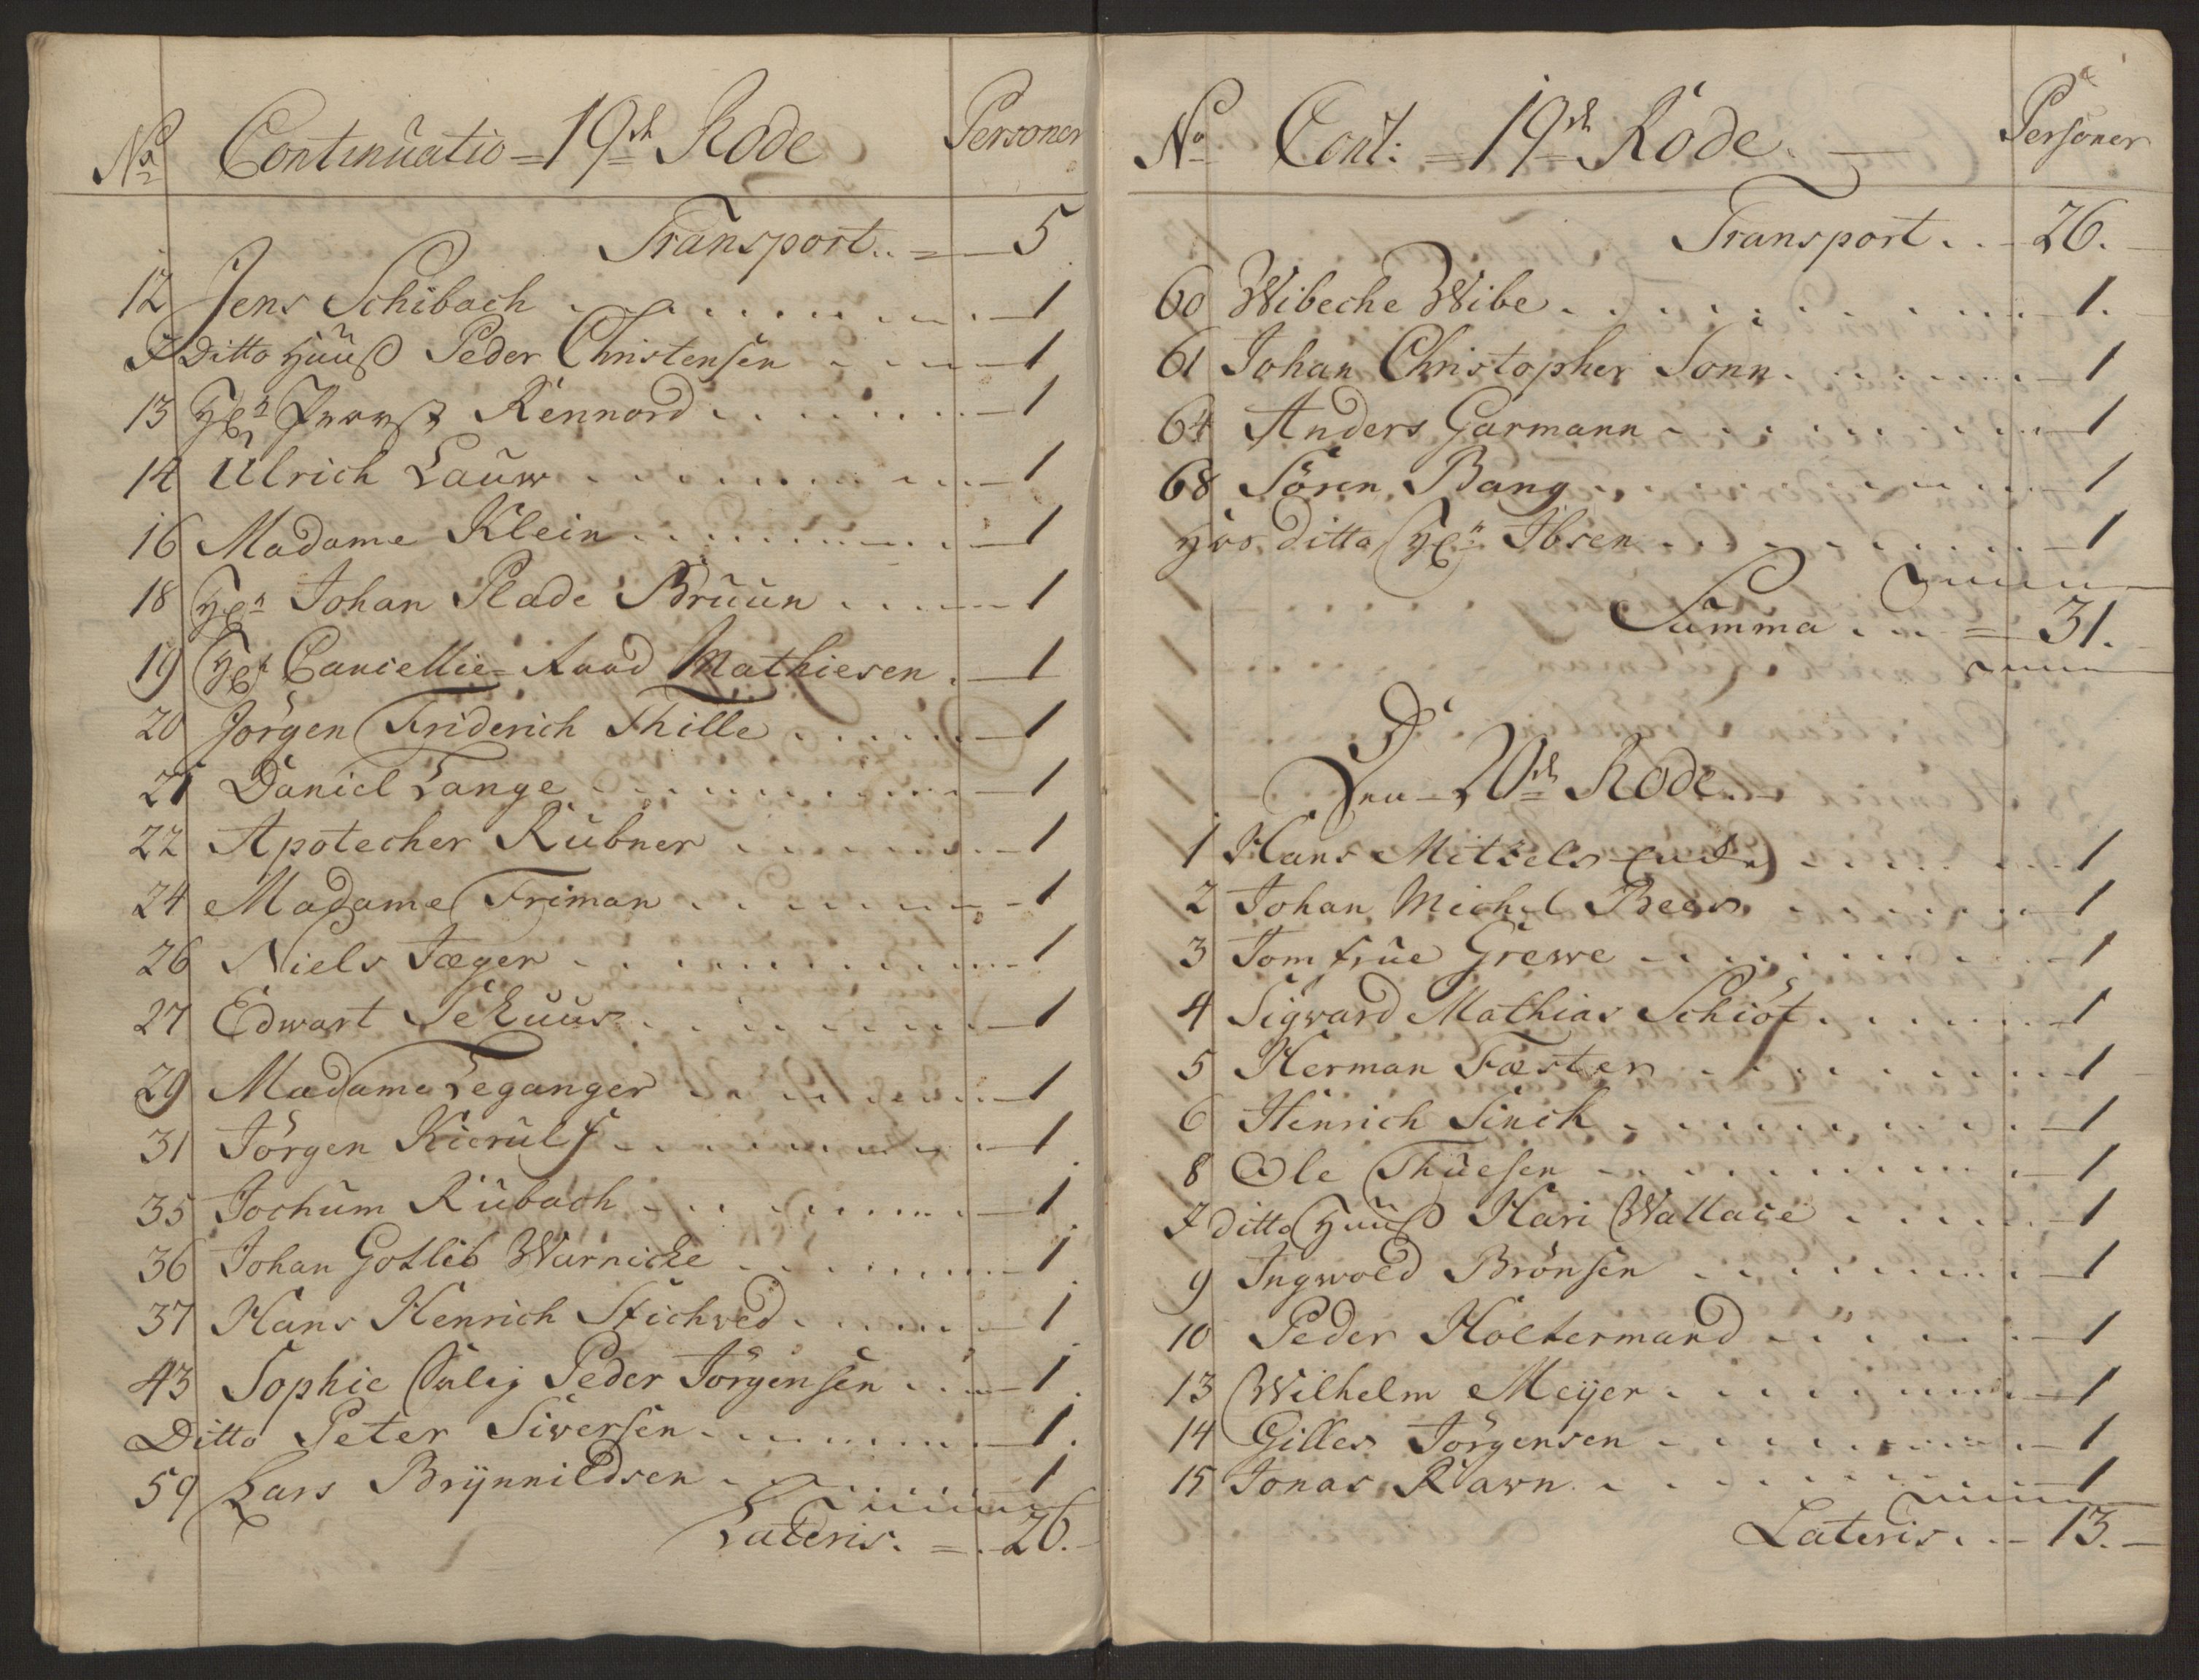 No Continuatio = 19de Rode Personer
Transport .. = 5
12 Jens Schibach 1
I Ditto Huus Peder Christensen 1
13 Hr. Provst Rennord 1
14 Ulrich Lauw 1
16 Madame Klein 1
18 Hr. Johan Plade Bruun 1
19 Hr. Cancellie-Raad Mathiesen 1
20 Jörgen Friderich Thille 1
21 Daniel Lange 1
22 Apotecher Rubner 1
24 Madame Friman 1
26 Niels Jæger 1
27 Edwart 1
29 Madame Leganger 1
31 Jörgen Kierulf 1
35 Jochum Rubach 1
36 Johan Gotlieb Warnicke 1
37 Hans Henrich Stichved 1
43 Sophie Salig Peder Jörgensen 1
Ditto Peter Siversen 1
59 Lars Brÿnnildsen 1
Lateris. = 26.
No Cont: = 19de Rode. Personer
Transport . . 26.
60 Wibeche Wibe 1.
61 Johan Christopher Sonn 1
64 Anders Garmann 1
68 Sören Bang 1
hos ditto Hr. Ibsen 1
Summa . . = 31.
Den 20de Rode
1 Hans Mitzels 1
2 Johan Michel Beer 1
3 Jomfrue Grewe 1
4 Sigvard Mathias Schiöt 1
5 Herman Fæster 1
6 Hinrich Sinck 1
8 Ole Thuesen 1
I ditto Huus Kari Wallace 1
9 Ingwold Brönsen 1
10 Peder Holtermand 1
13 Wilhelm Meÿer 1
14 Gilles Jörgensen 1
15 Jonas Rawn 1
Lateris . . 13.